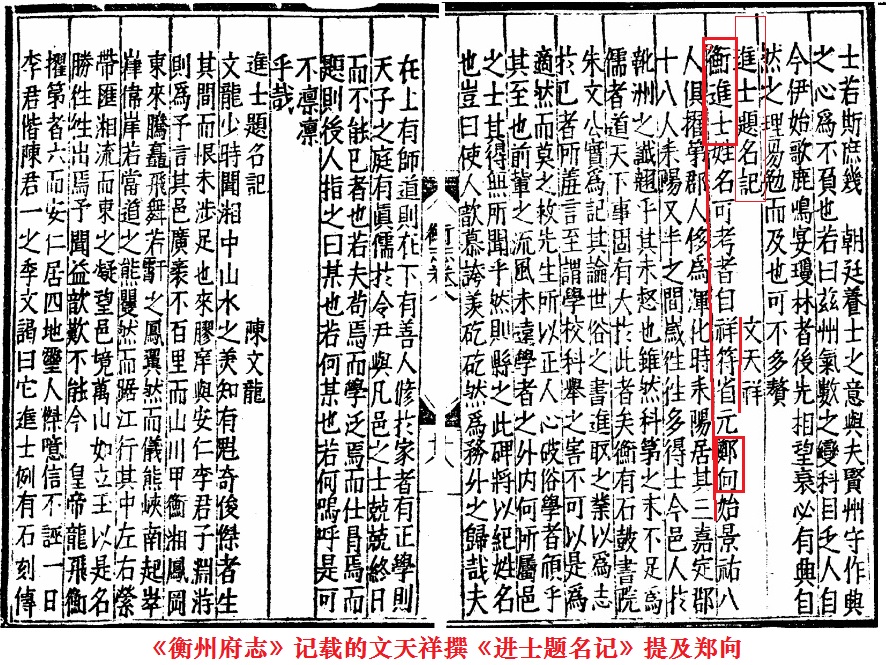 士若斯庶幾　朝廷養士之意與夫賢州守作典
之心爲不負也若曰茲州氣數之變科目乏人自
今伊始歌鹿鳴宴瓊林者後先相望衰必有典自
然之理易勉而及也可不多贅
進士題名記　文天祥
衡進士姓名可考者自祥符省元鄭向始景祐八
人俱擢第郡人侈爲渾化時耒陽居其三嘉定郡
十八人耒陽又半之間歲徃徃多得士今邑人於
靴洲之讖趨乎其未也雖然科第之末不足爲
儒者道天下事固有大於此者矣衡有石鼓書院
朱文公實爲記其論世俗之書進取之業以爲志
於已者所羞言至謂學校科舉之害不可以是爲
適然而莫之救先生所以正人心破俗學者乎
其至也前輩之流風未遠學者之外内何所屬邑
之士其得無所聞乎然則縣之此碑將以紀姓名
也豈曰使人歆慕誇羡矻矻然爲務外之歸哉夫
在上有師道則在下有善人修於家者有正學則
天子之庭有眞儒於令尹與凡邑之士兢兢終日
而不能已者也若夫苟焉而學泛焉而仕胥焉而
題則後人指之曰某也若何某也若何嗚呼是可
不凛凛
乎哉
進士題名記　陳文龍
文龍少時聞湘中山水之美知有魁奇俊傑者生
其間而恨未涉足也來膠庠與安仁李君子淵游
則爲予言其邑廣袤不百里而山川甲衡湘鳳岡
東來騰矗飛舞若之鳳翼然而儀熊峽南起崒
嵂偉岸若當道之熊矍然而踞江行其中左右縈
帶匯湘流而東之凝望邑境萬山如立玉以是名
勝徃徃出焉予聞益歆歎不能今　皇帝龍飛衡
擢第者六而安仁居四地靈人傑噫信不誣一日
李君偕陳君一之季文謁曰它進士例有石刻傳
《衡州府志》记载的文天祥撰《进士题名记》提及郑向